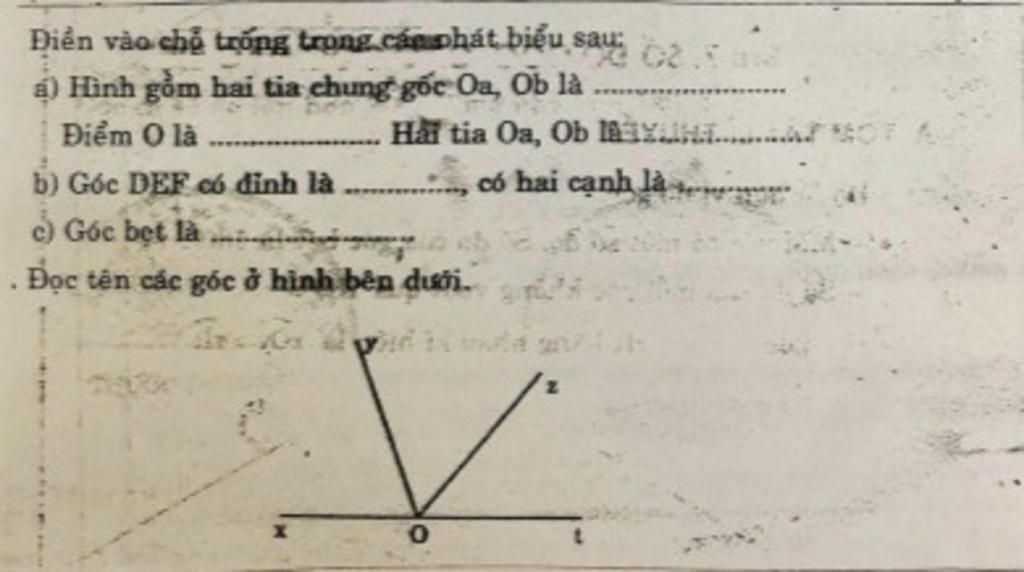 Điền vào chỗ trống trong các phát biểu sau:
a) Hình gồm hai tia chung gốc Oa, Ob là ..............................
Điểm O là .......................... Hai tia Oa, Ob là ..............................
b) Góc DEF có đỉnh là .................., có hai cạnh là ..................
c) Góc bẹt là ..............................
. Đọc tên các góc ở hình bên dưới.
y
z
x O t